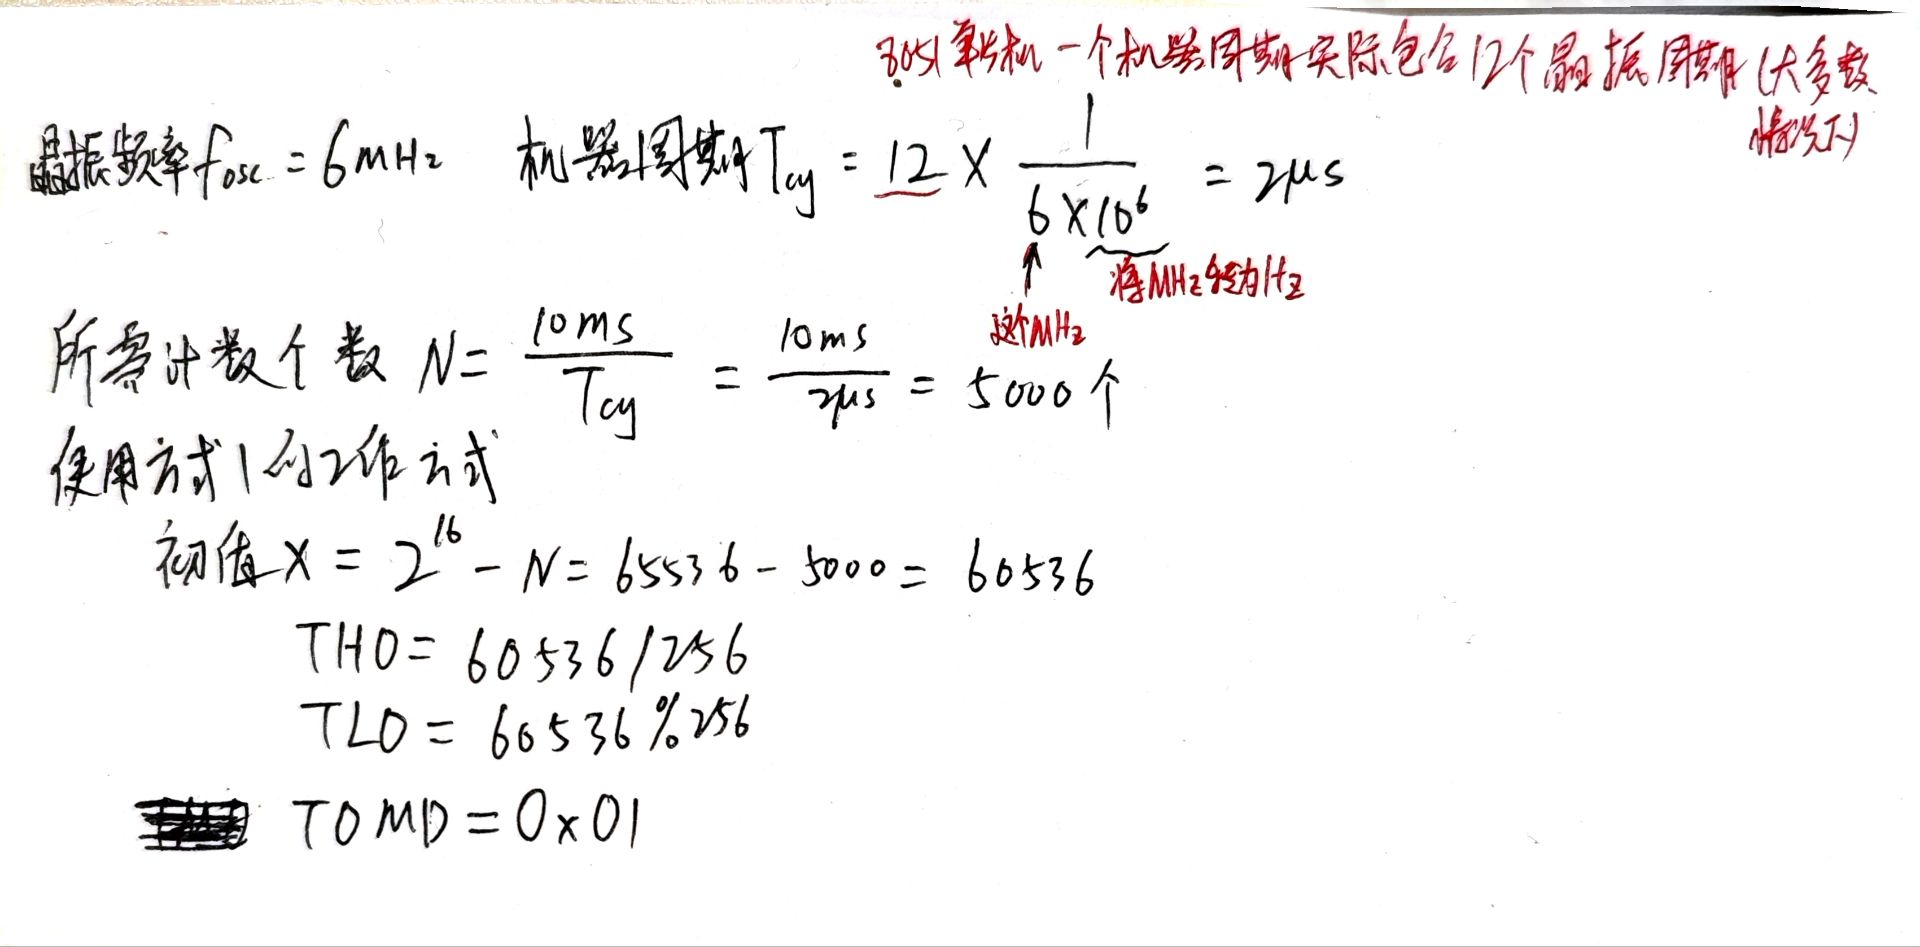 8051单片机一个机器周期实际包含12个晶振周期(大多数
情况下)
晶振频率fosc = 6MHz 机器周期Tcy = 12 × 1/(6×10^6) = 2μs
将MHz转为Hz
这个MHz
所需计数个数 N = 10ms/Tcy = 10ms/2μs = 5000个
使用方式1的工作方式
初值X = 2^16 - N = 65536 - 5000 = 60536
TH0 = 60536/256
TL0 = 60536%256
T0MD = 0x01